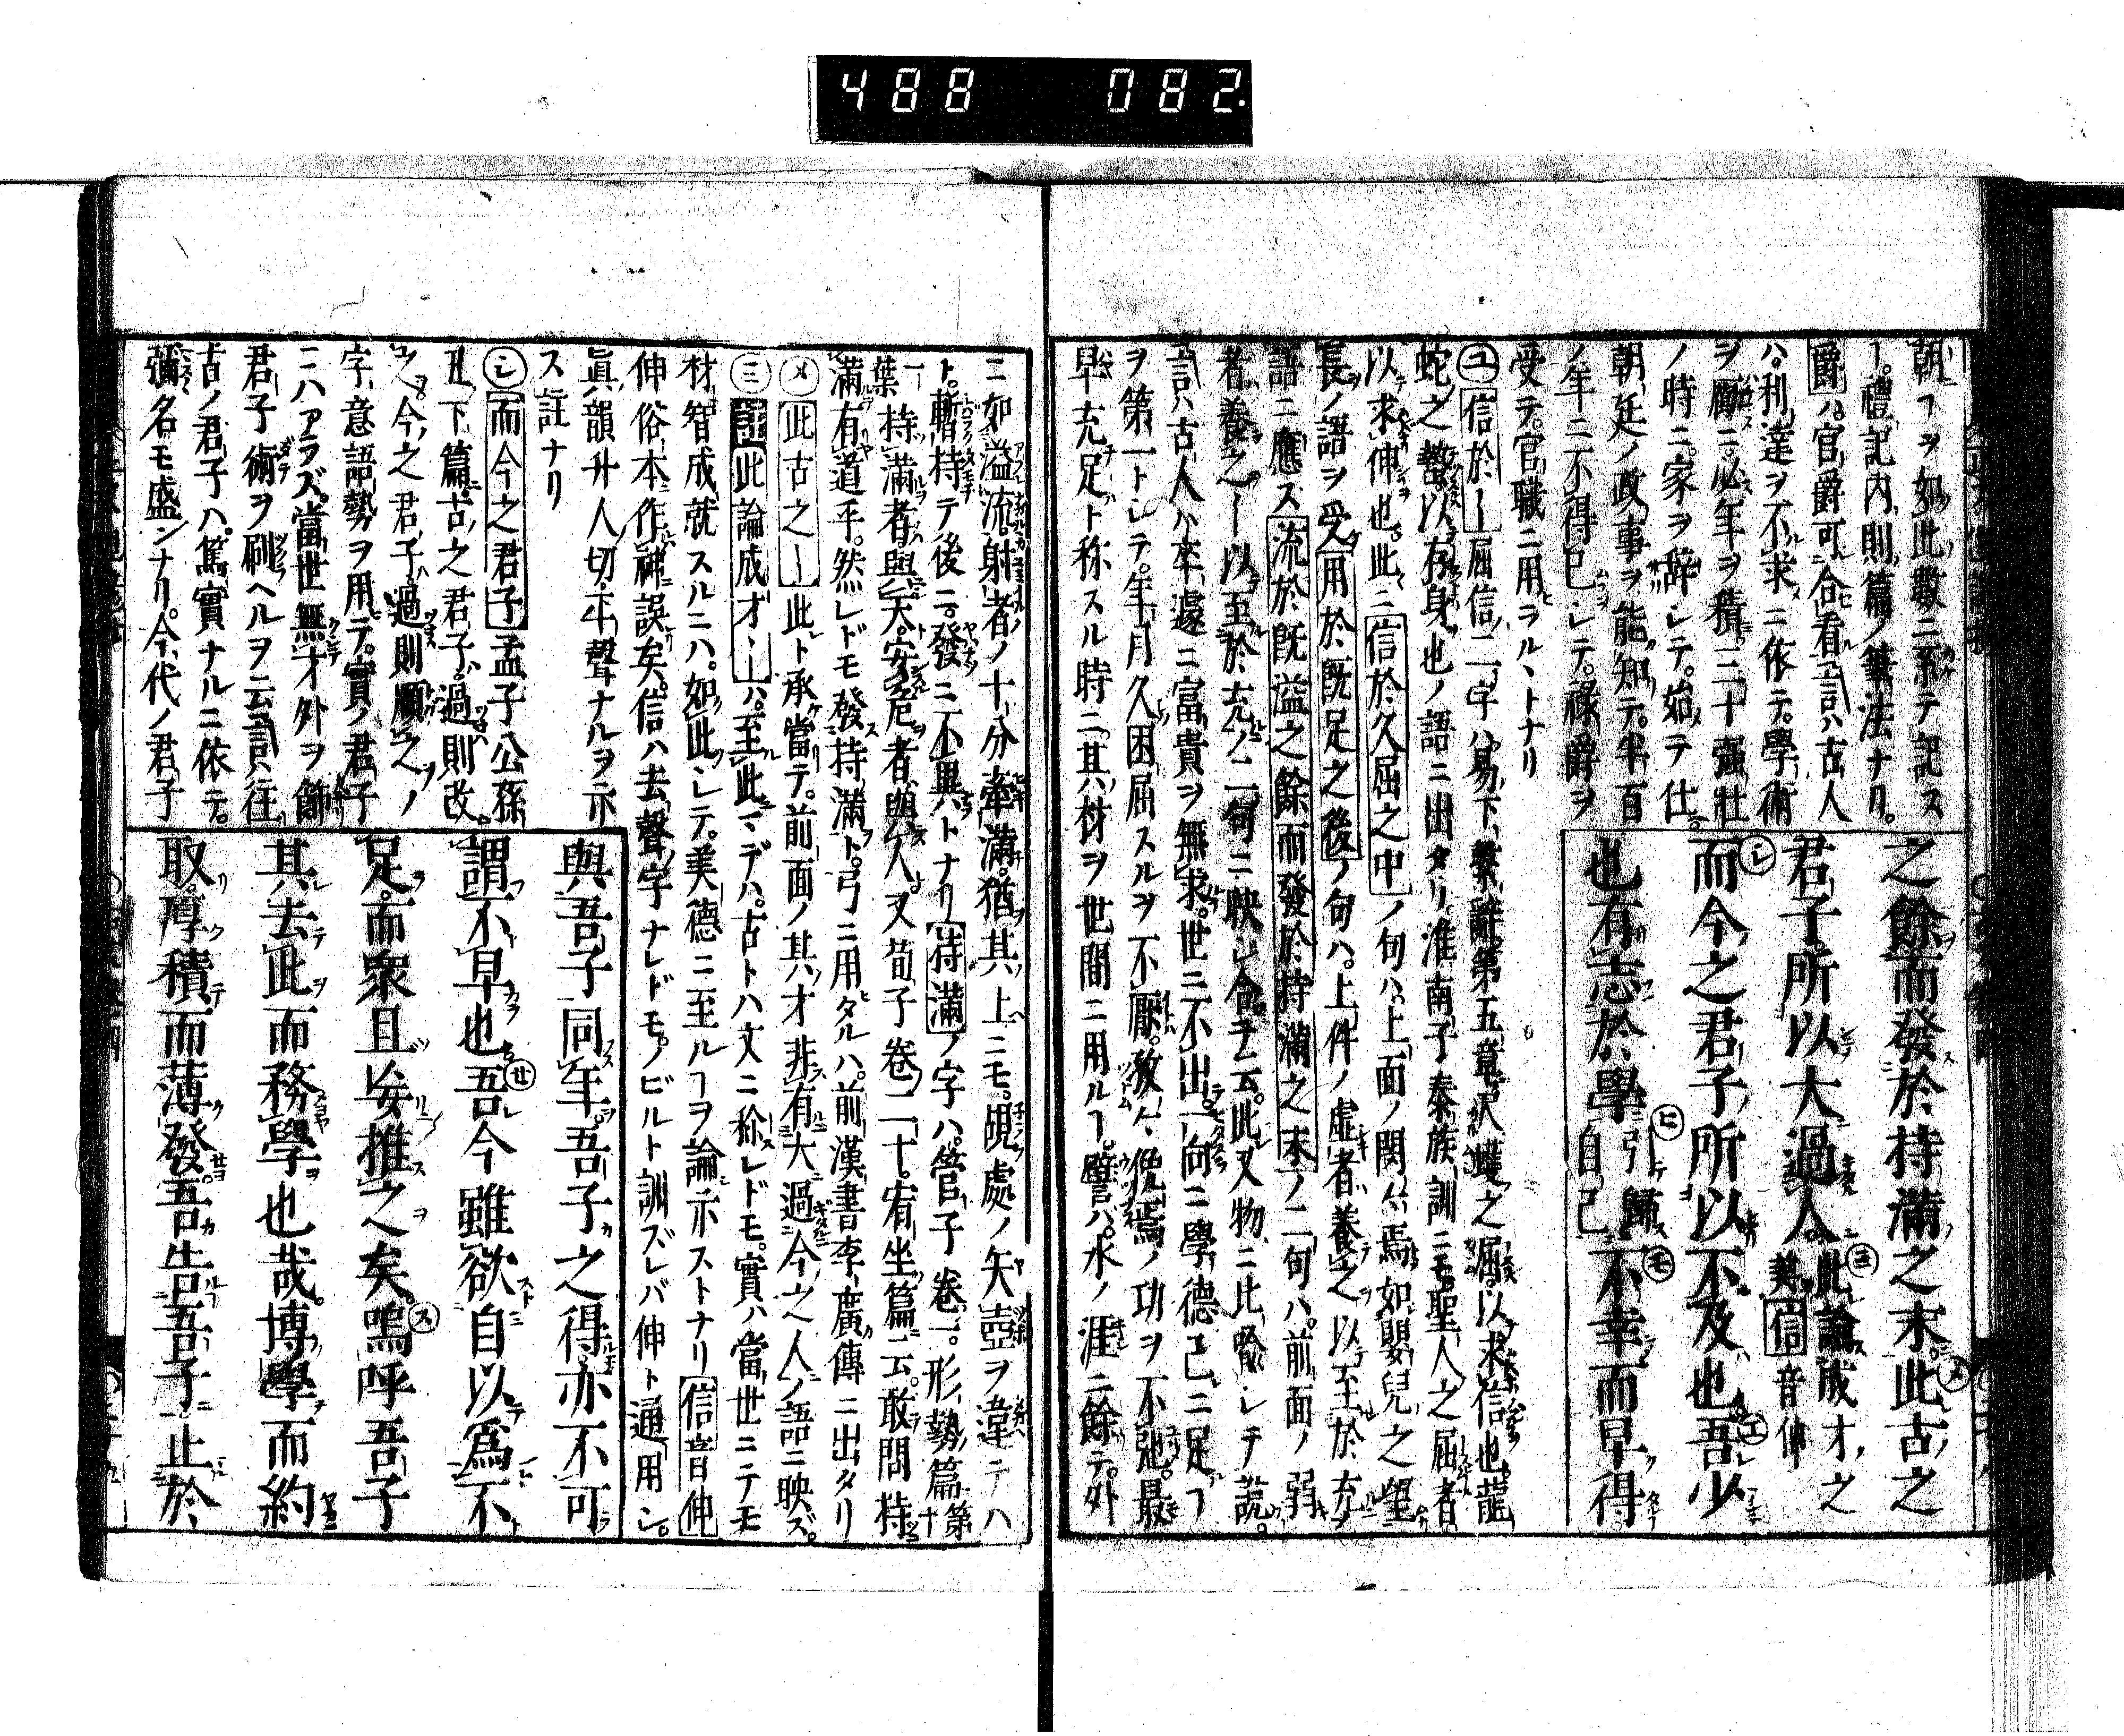 488 082.
朝ヿヲ如此數ニ系テ記ス
ヿ。禮記内則篇ノ筆法ナリ。
爵ハ官爵可合看言ハ古人
ハ。利達ヲ不求ニ依テ。學術
ヲ勵ニ。必年ヲ積。三十強壯
ノ時ニ。家ヲ辭シテ。始テ仕
朝廷ノ政事ヲ能知テ。半百
ノ年ニ不得已シテ。祿爵ヲ
受テ。官職ニ用ラルヽトナリ
之餘而發於持滿之末。此古之
君子所以大過人。此論成才之美。信音伸
而今之君子所以不及也吾少
也有志於學引歸自己不幸而早得
ユ信於ー屈信二字ハ易下繫辭第五章尺蠖之屈以求信也龍
蛇之蟄以存身也ノ語ニ出タリ。淮南子泰族訓ニモ聖人之屈者
以求伸也。此ニ信於久屈之中ノ句ハ。上面ノ閔焉如嬰兒之望
長ノ語ヲ受用於既足之後ノ句ハ。上件ノ虛者養之以至於充ノ
語ニ應ス流於既溢之餘而發於持滿之末ノ二句ハ。前面ノ弱
者養之ー以至於充ノ二句ニ映シ合ヲ云。此又物ニ比喩シテ說。
言ハ古人ハ卒遽ニ富貴ヲ無求。世ニ不出。一向ニ學德己ニ足ヿ
ヲ第一トシテ。年月久困屈スルヲ不厭。孜々俛焉ノ功ヲ不弛。最
早充足ト称スル時ニ其材ヲ世間ニ用ルヿ。譬バ水ノ涯ニ餘テ。外
ニ如溢流。射者ノ十分牽滿。猶其上ニモ。覘處ノ矢壺ヲ違テハ
ト。暫持テ後ニ發ニ不異トナリ持滿ノ字ハ。管子卷一。形勢篇第
一葉持滿者與天。安危者與人。又荀子卷二十。宥坐篇云。敢問持
滿有道乎。然レドモ發持滿ト。弓ニ用タルハ。前漢書李廣傳ニ出タリ
メ此古之ー此ト承當テ。前面ノ其才非有大過今之人ノ語ニ映ズ。
ミ圖此論成才ーハ。至此マデハ。古トハ文ニ称スレドモ。實ハ當世ニテモ
材智成就スルニハ。如此シテ。美德ニ至ルヿヲ論示ストナリ信音伸
伸俗本作神誤矣。信ハ去聲ノ字ナレドモ。ノビルト訓ズレバ伸ト通用シ。
眞韻升人切。平聲ナルヲ示
ス註ナリ
シ而今之君子孟子公孫
丑下篇。古之君子。過則改
之今之君子過則順之ノ
字意語勢ヲ用テ。實ノ君子
ニハアラズ。當世無才外ヲ飾
君子術ヲ刷ヘルヲ云言往
古ノ君子ハ。篤實ナルニ依テ。
彌名モ盛ンナリ。今代ノ君子
與吾子同年。吾子之得亦不可
謂不早也吾今雖欲自以爲不
足。而衆且妄推之矣。嗚呼吾子
其去此而務學也哉。博學而約
取。厚積而薄發。吾告吾子止於